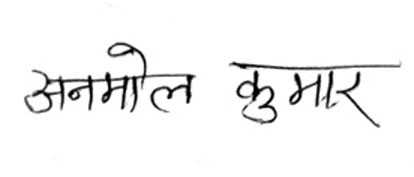 अनमोल कुमार